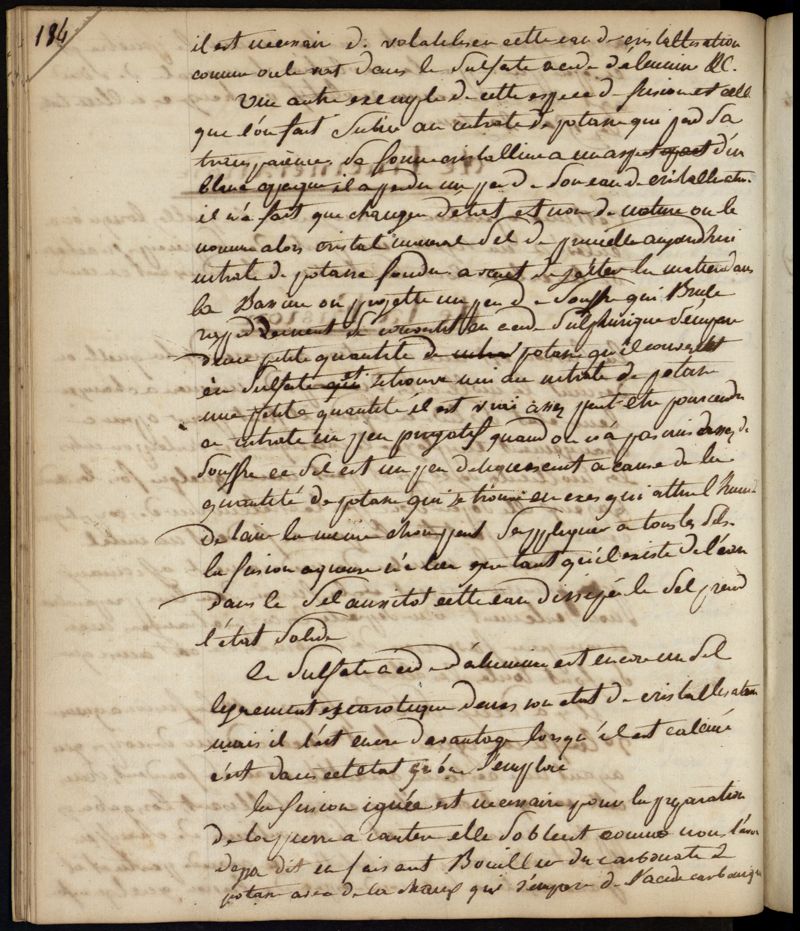 184
il est necessair de volatiliser cette eau de cristallisation
comme on le voit dans le Sulfate acide d'alumine &C.
Une autre exemple de cette espece de fusion est celle
que l'on fait Subir au nitrate de potasse qui perd Sa
transparence Sa forme cristalline a un aspect d'un
blanc opaque il a perdu un peu de Son eau de cristallisation
il n'a fait que changer d'etat et non de nature on le
nomme alors cristal mineral Sel de prunelle aujourdhui
nitrate de potasse fondu avant de jetter la matiere dans
la Bassine on projette un peu de Souffre qui Brule
rapidement Se convertit en acide Sulphurique S'empare
d'une petite quantité de potasse qu'il convertit
en Sulfate qui Se trouve uni au nitrate de potasse
une petite quantité il est vrai assez peut etre pour rendre
ce nitrate un peu purgatif quand on n'a pas mis assez de
Souffre ce Sel est un peu deliquescent a cause de la
quantité de potasse qui Se trouve en exes qui attire l'humid
de l'air la meme chose peut S'appliquer a tous les Sels
la fusion aqueuse n'a lieu que tant qu'il existe de l'eau
dans le Sel aussitot cette eau dissipée le Sel prend
l'état Solide
le Sulfate acide d'alumine est encore un Sel
legerement escarotique dans son etat de cristallisation
mais il l'est encore davantage lorsqu'il est calciné
c'est dans cet etat qu'on l'emploie
la fusion ignée est necessaire pour la preparation
de la pierre a cautere elle S'obtient comme nous l'avons
deja dit en faisant Bouillir du carbonate de
potasse avec de la chaux qui S'empare de l'acide carbonique